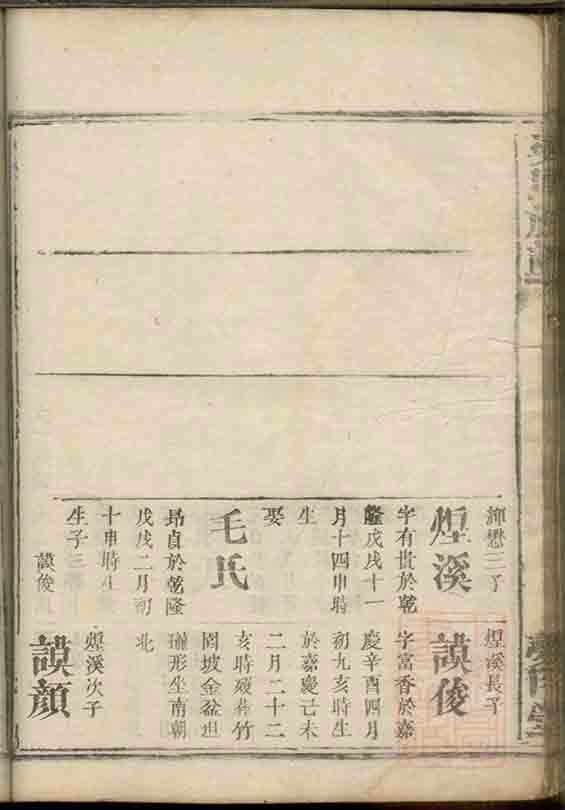 煋溪
字有貴於乾
隆戊戌十一
月十四申時
生
娶
毛氏
昂貞於乾隆
戊戌二月初
十申時生
生子三
謨俊
煋溪長子
謨俊
字富香於嘉
慶辛酉四月
初九亥時生
於嘉慶己未
二月二十二
亥時歿葬竹
園坡金盆坦
形坐南朝
北
煋溪次子
謨顏